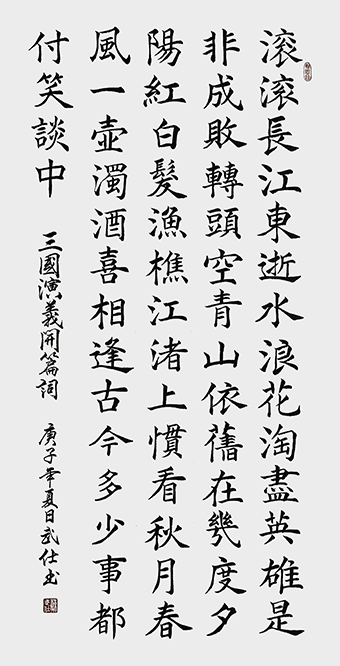 滾滾長江東逝水浪花淘盡英雄是
非成敗轉頭空青山依舊在幾度夕
陽紅白髮漁樵江渚上慣看秋月春
風一壺濁酒喜相逢古今多少事都
付笑談中
三國演義開篇詞 庚子年夏日武仕書